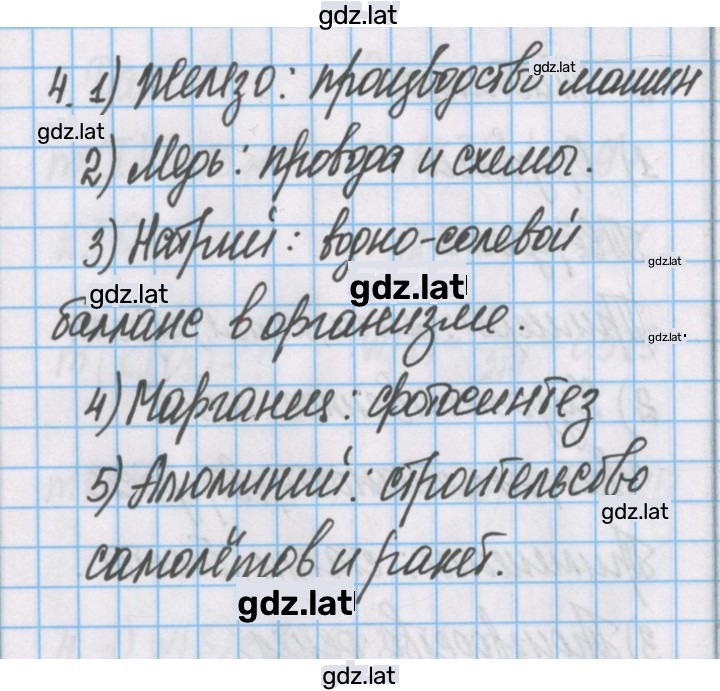 gdz.lat
4. 1) Железо: производство машин
gdz.lat
gdz.lat
2) Медь: провода и схемы.
3) Натрий: водно-солевой
gdz.lat
gdz.lat
gdz.lat
балланс в организме.
gdz.lat
4) Марганец: фотосинтез
5) Алюминий: строительство
gdz.lat
самолётов и ракет.
gdz.lat
gdz.lat